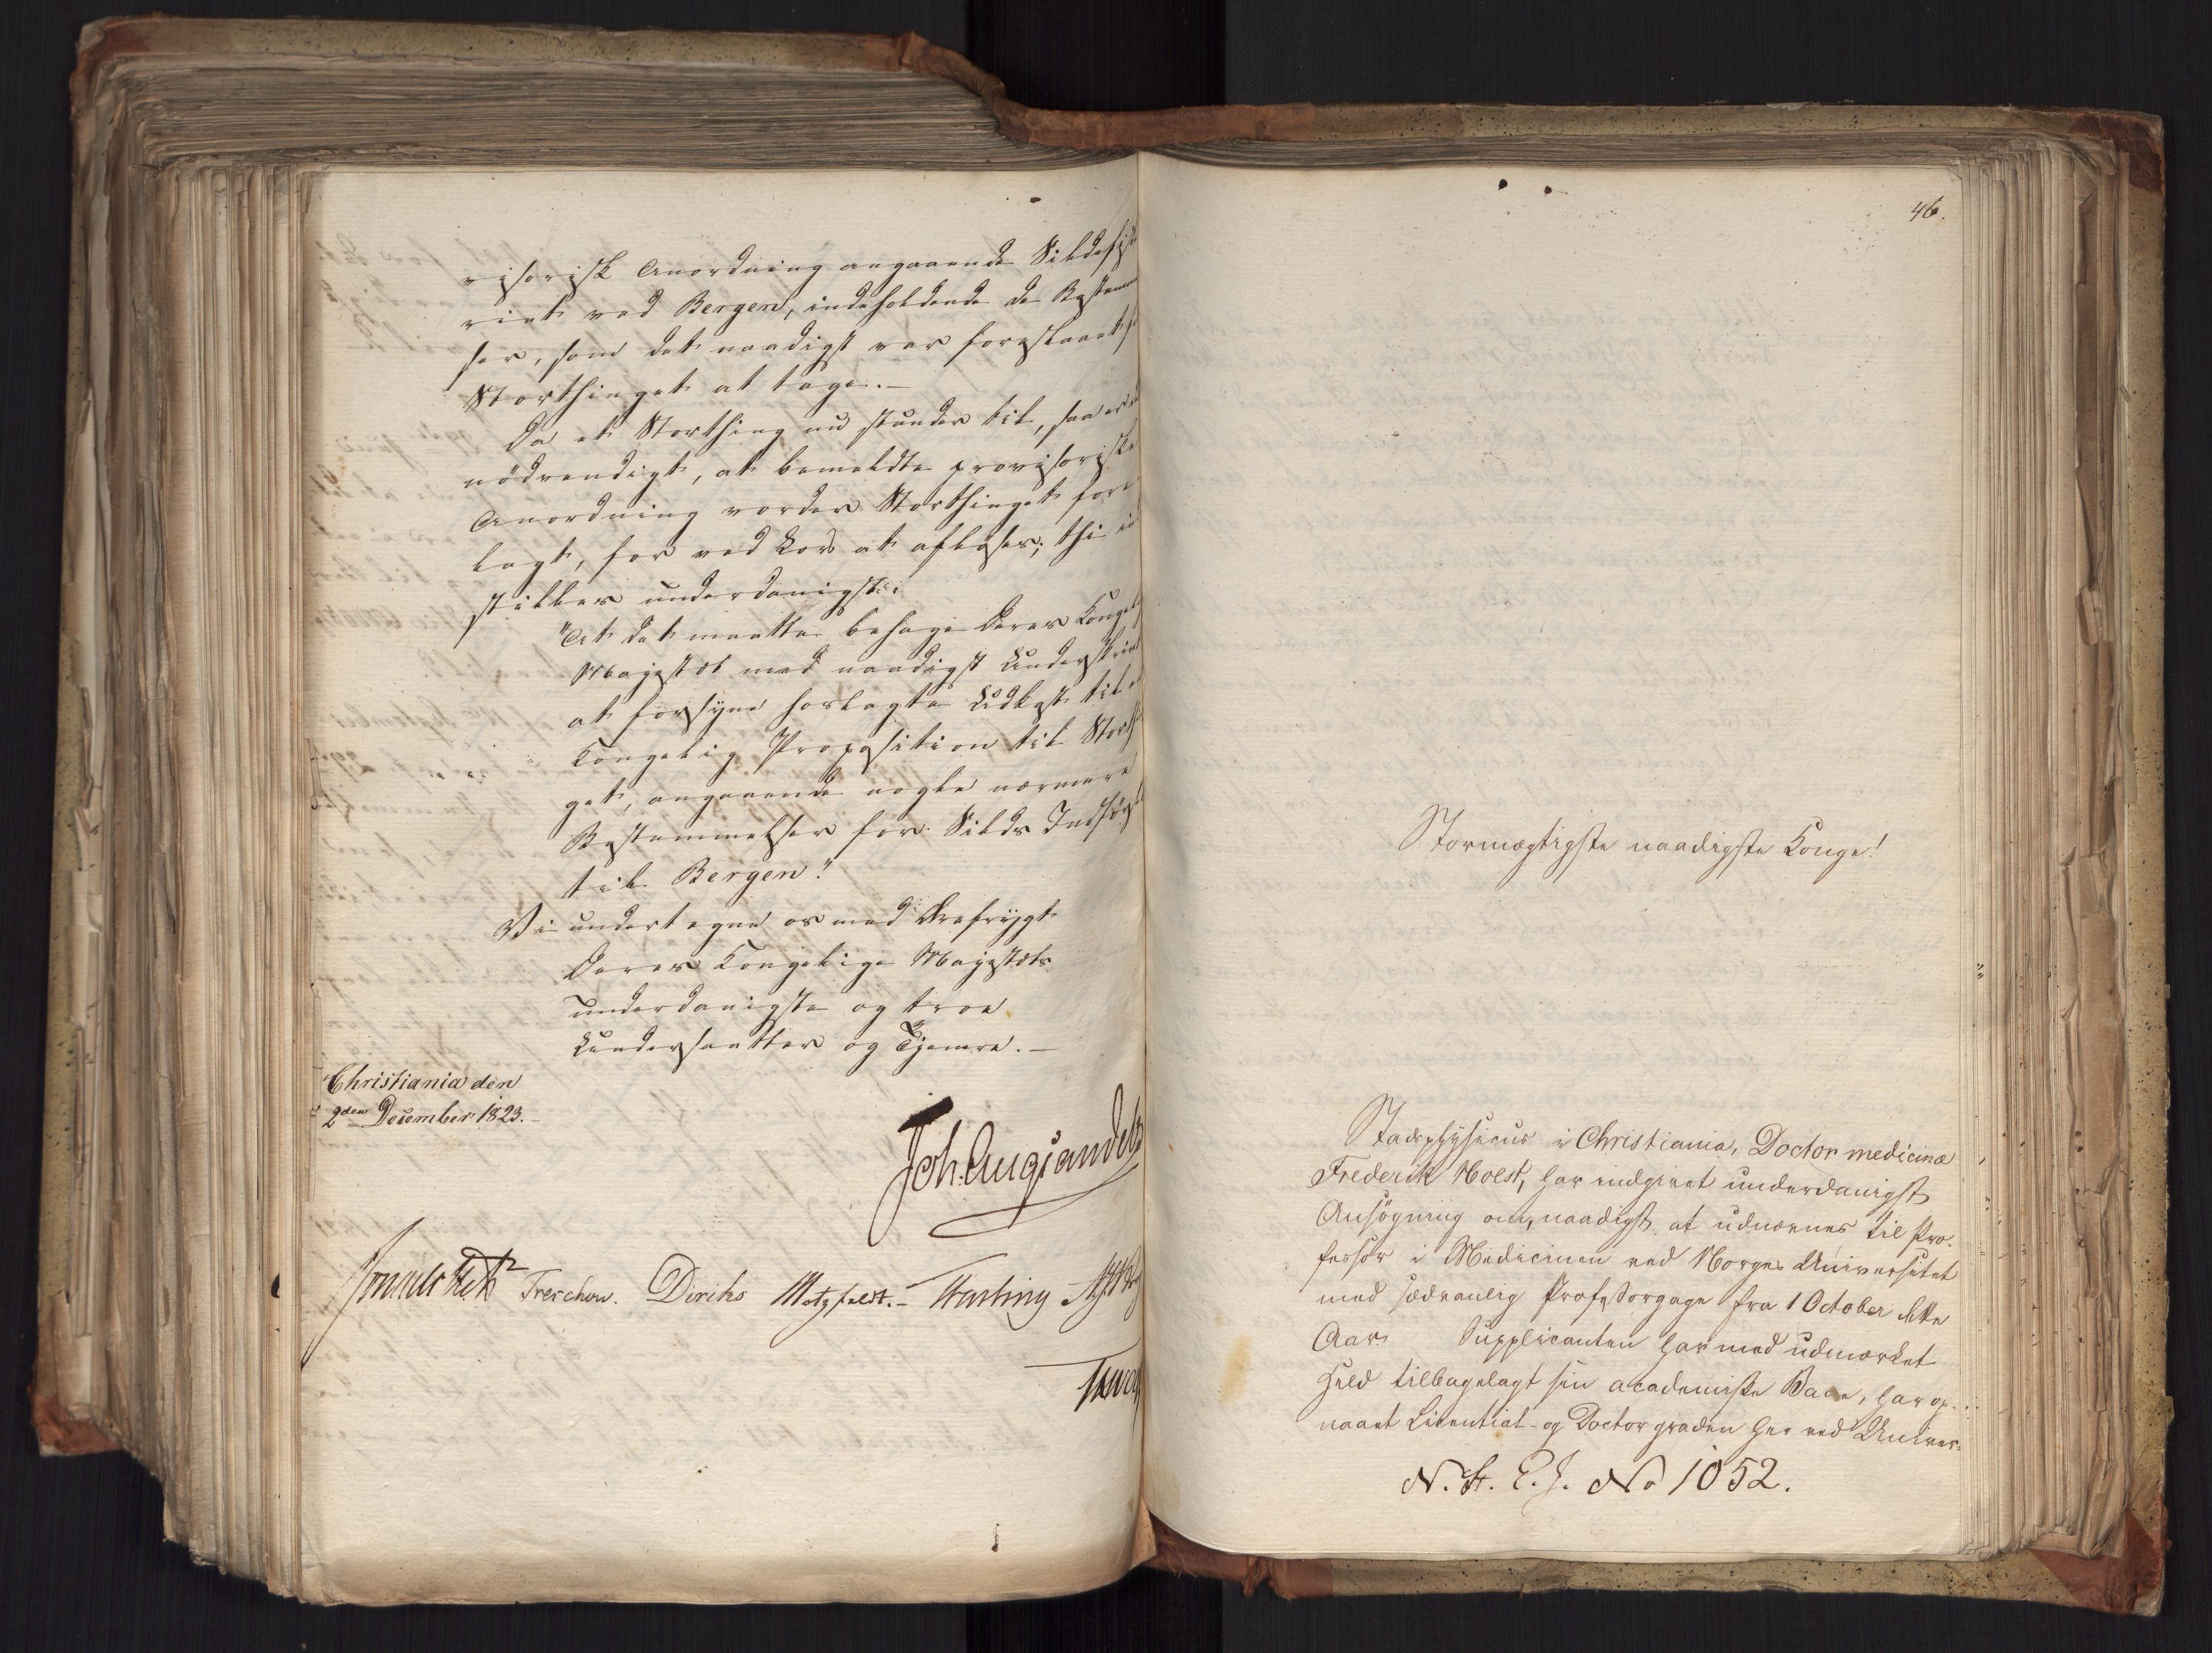 visorisk Anordning angaaende Sildefiske
riet ved Bergen, indeholdende de Bestemmel
ser, som det naadigst var foreslaaet
Storthinget at tage.—
Da et Storthing nu stunder til, saa er
nödvendigt, at bemeldte provisoriske
Anordning vorder Storthinget fore
lagt, for ved Lov at afløses; thi ind
stilles underdanigst:
"At det maatte behage Deres Kongelige
Majestæt med naadigst Underskrivt
at forsyne hoslagte Udkast til
Kongelig Proposition til Storthin
get, angaaende nogle nærmere
Bestemmelser for Silds Indførsel
til Bergen."
Vi undertegne os med Ærefrygt
Deres Kongelige Majestæts
underdanigste og troe
Undersaatter og Tjenere.—
Christiania den
2den December 1823.—
Joh. Aug. Sandels
Sommerhielm Treschow. Diriks Motzfeldt.— Fasting
46.
Stormægtigste naadigste Konge!
Stadsphysicus i Christiania, Doctor medicinæ
Frederik Holst, har indgivet underdanigst
Ansögning om, naadigst at udnævnes til Pro-
fessor i Medicinen ved Norges Universitet
med sædvanlig Professorgage fra 1 October dette
Aar. Supplicanten har med udmærket
Held tilbagelagt sin academiske Bane, har op-
naaet Licentiat- og Doctorgraden her ved Univer-
N. St. E. J. No 1052.